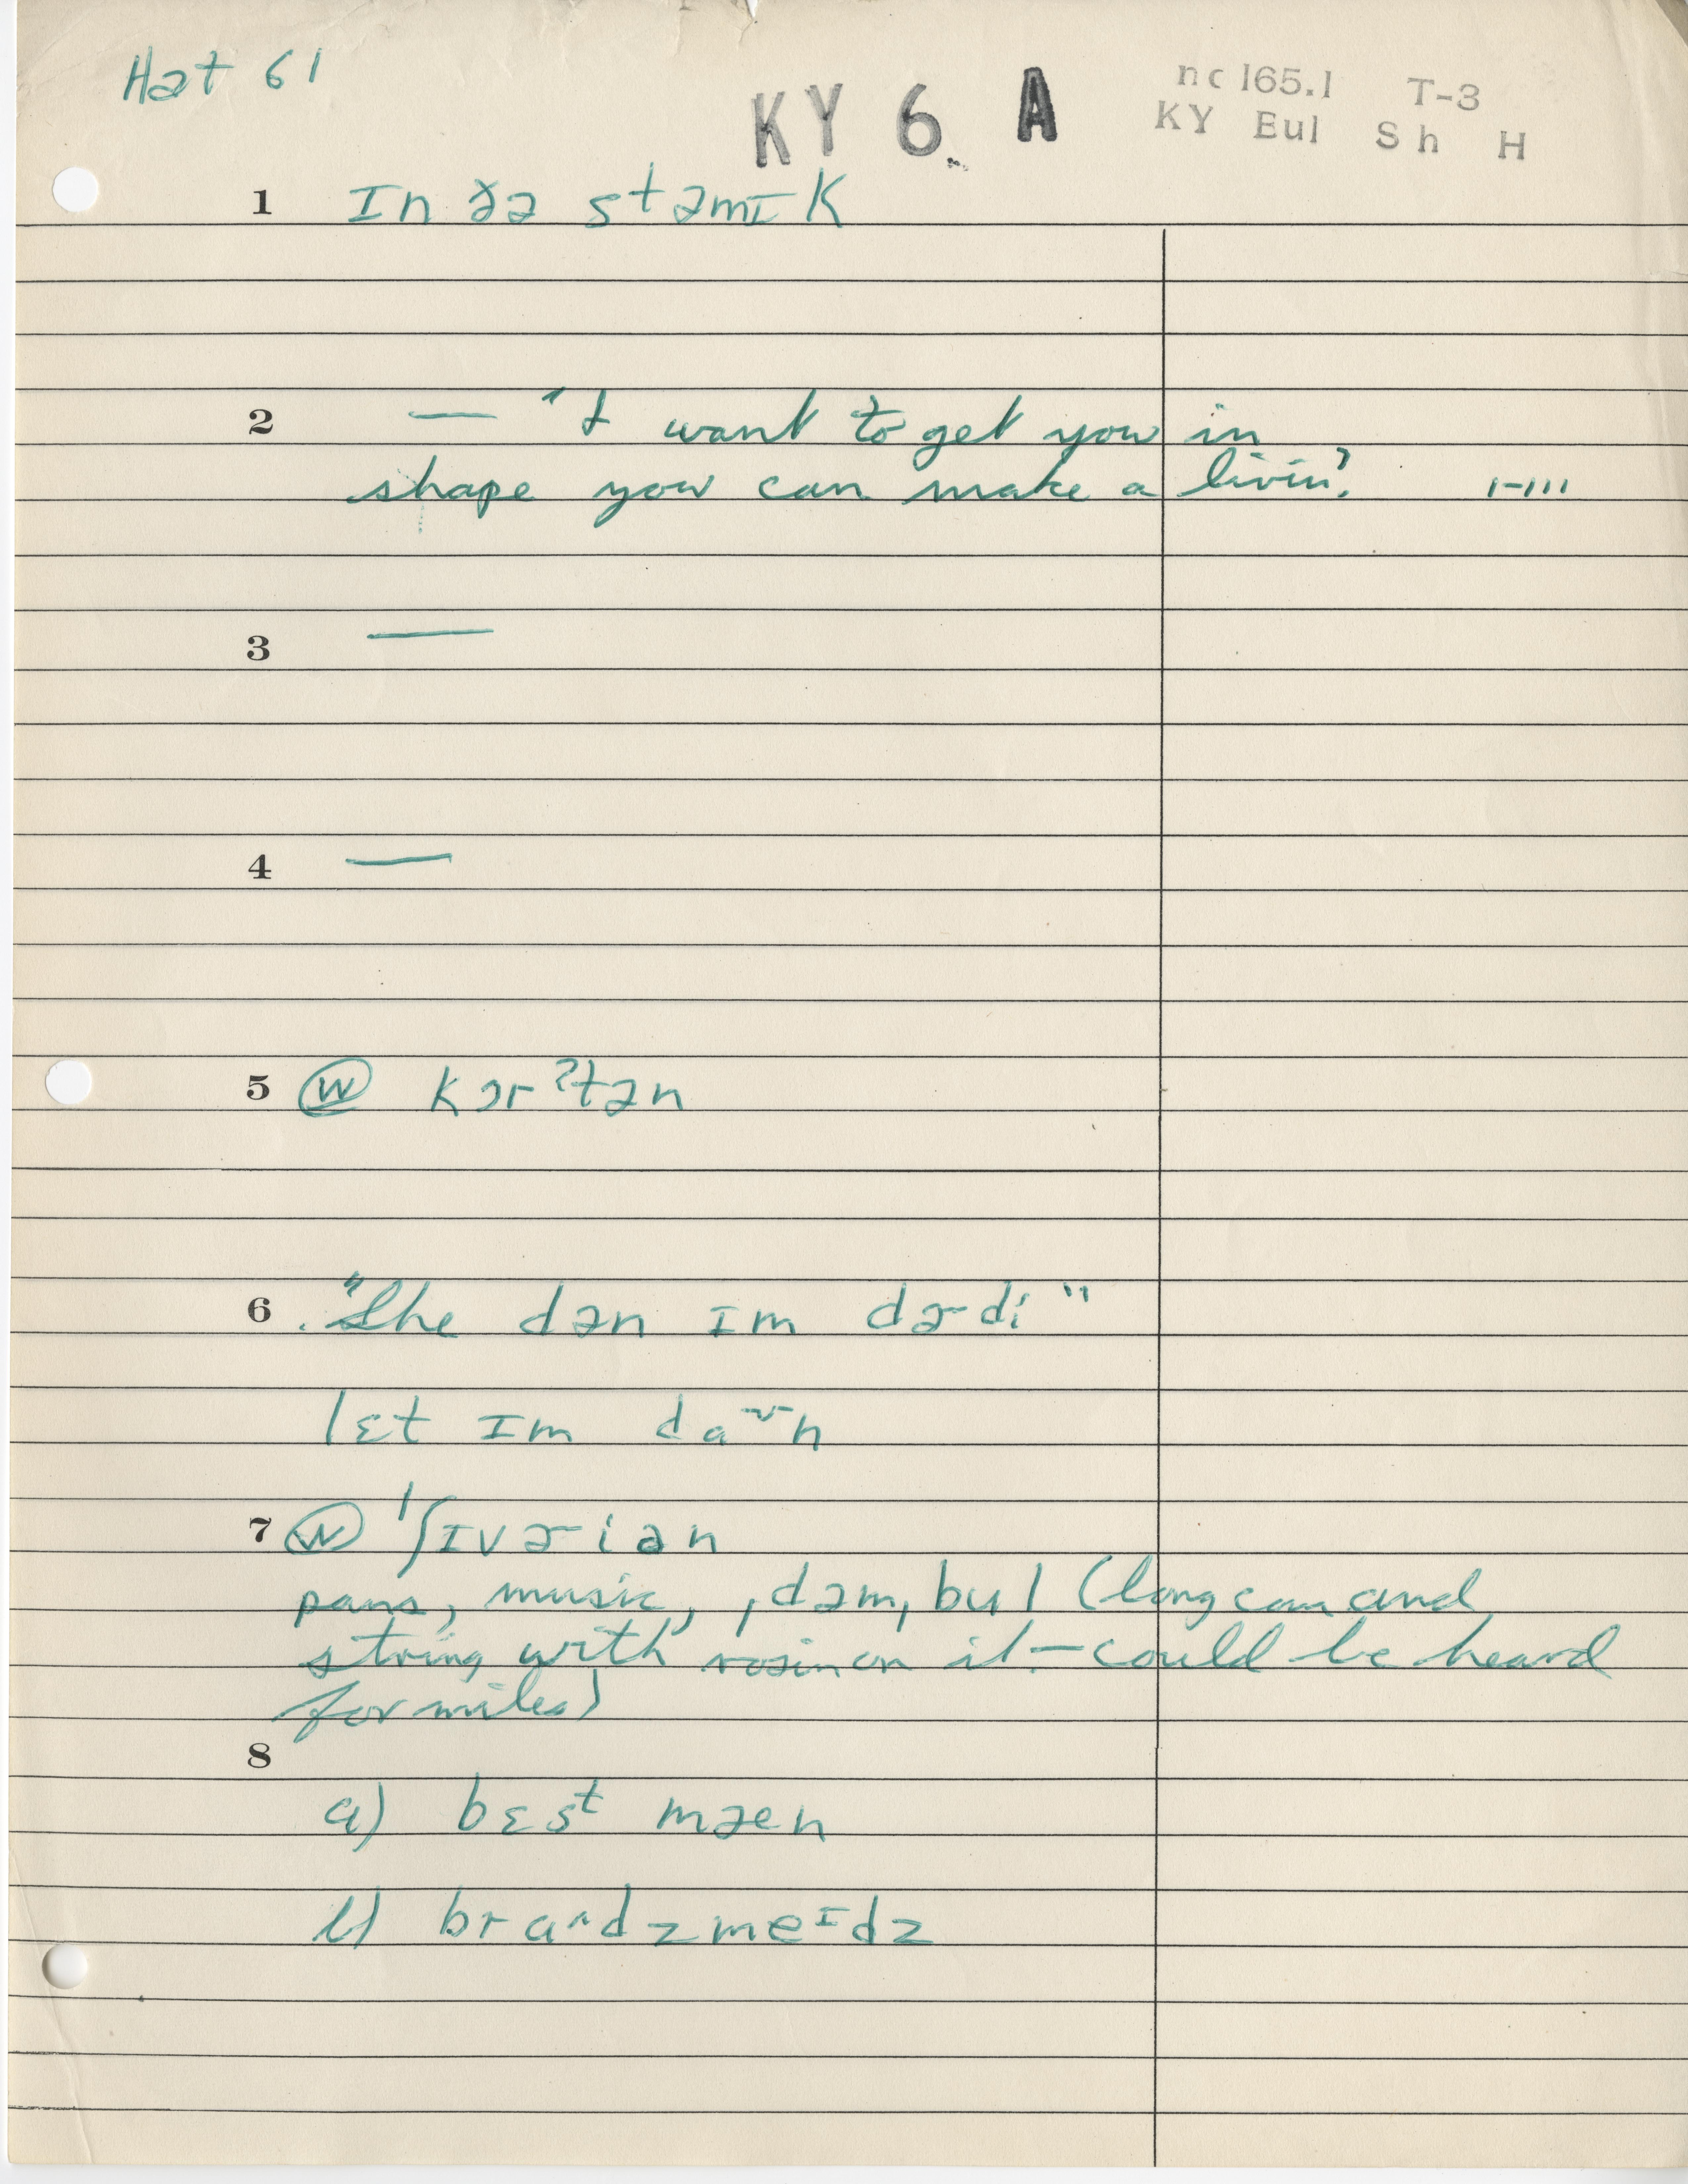 Hat 61
KY 6 A
nc 165.1 T-3
KY Eul Sh H
1 ɪn ðə stəmɪk
2 — "I want to get you in
shape you can make a livin'.
3 —
4 —
5 ⓦ kɔrˀtən
6 "She dən ɪm dɚdi"
lɛt ɪm daᵕn
7 ⓦ ˈʃɪvɚiən
pans, music, , dəm, bul (long can and
string with rosin on it — could be heard
for miles)
8
a) bɛsᵗ mæn
b) braɪdzmeɪdz